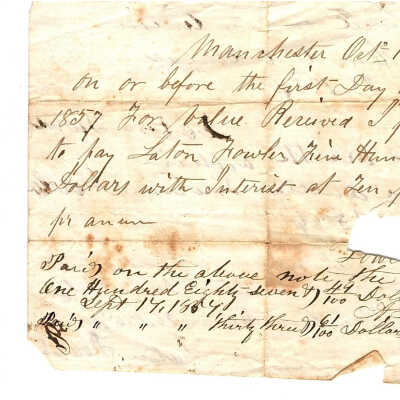 Manchester Oct
on or before the first Day
1857 For Value Received I p
to pay Laton Fowler Five Hun
Dollars with Interist at Ten p
pr anum
Fow
Paid on the above note the
One Hundred Eighty seven & 47/100 Doll
Sept 17, 1857
Paid " " " thirty three & 61/100 Dollars